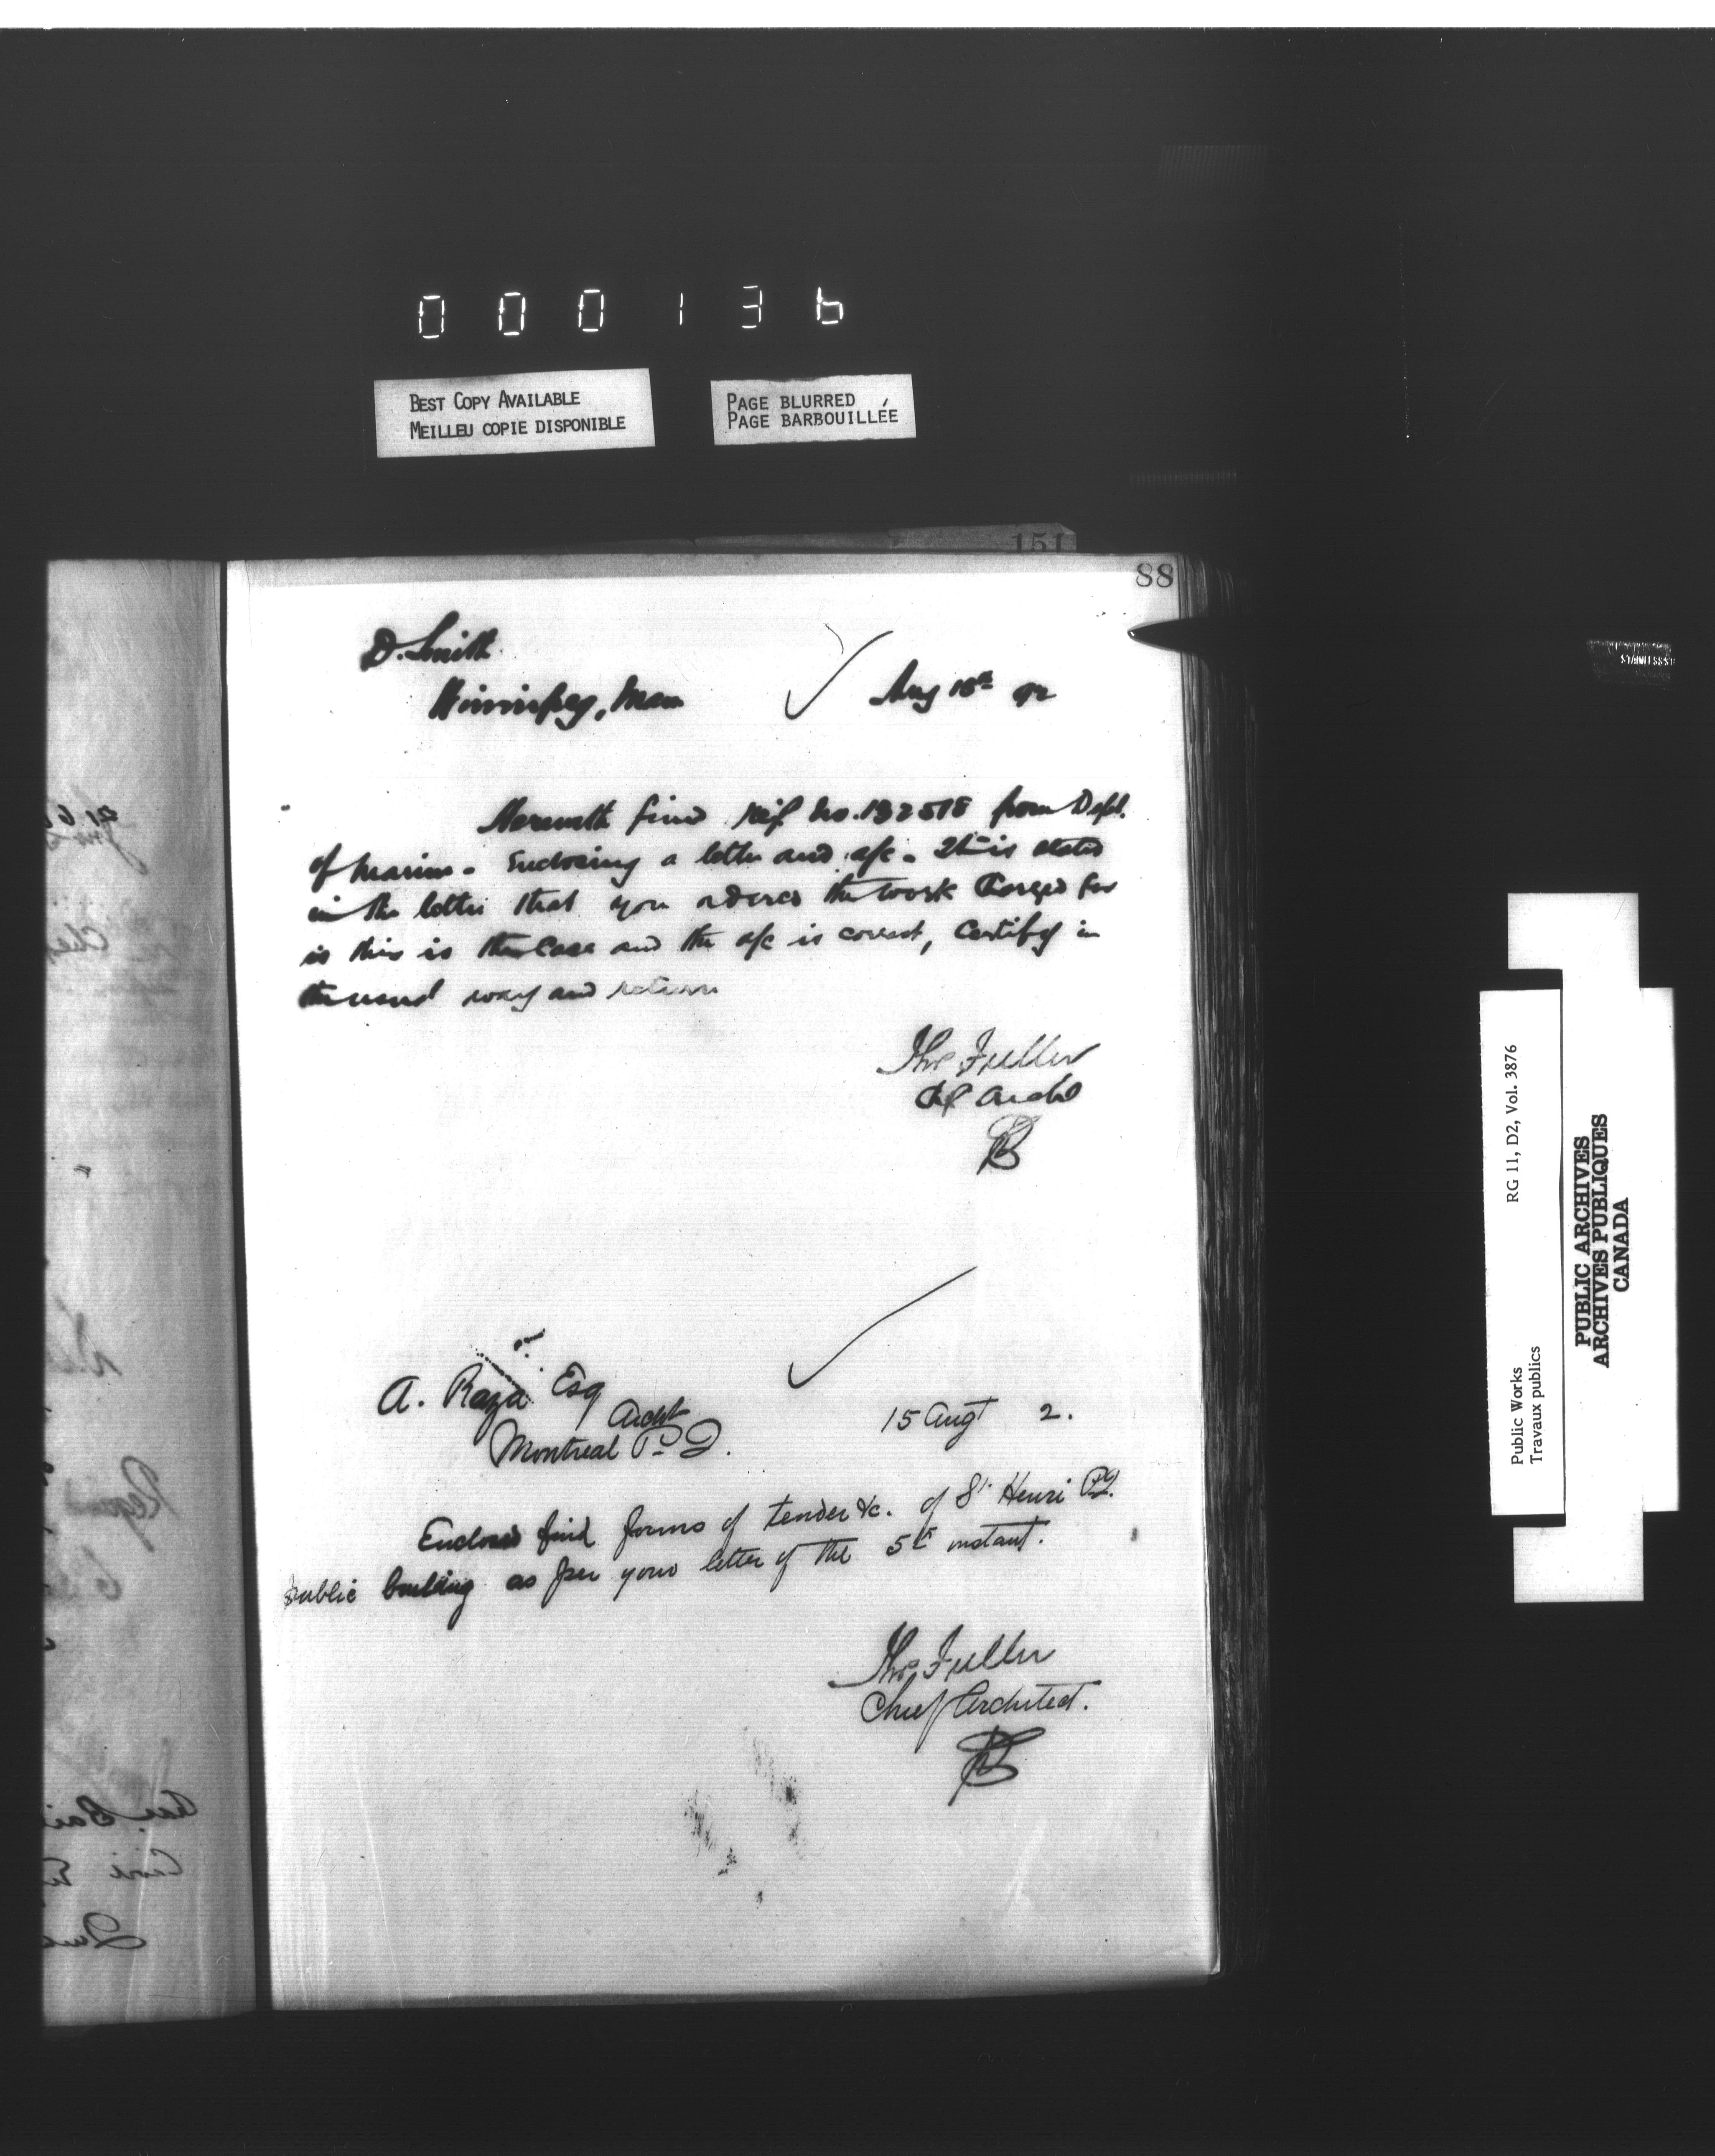 000136
BEST COPY AVAILABLE
MEILLEU COPIE DISPONIBLE
PAGE BLURRED
PAGE BARBOUILLÉE
151
88
D. Smith
Winnipeg, Man
Aug 15th 92
Herewith find Ref. No. 132518 from Dept.
of Marine. Enclosing a letter and a/c. It is stated
in the letter that you ordered the work charged for
is this is the case and the a/c is correct, Certify in
the usual way and return
Thos Fuller
Ch Archt
A. Raza Esq
Archt
Montreal P. Q.
15 Augt 2.
Enclosed find forms of tender &c. of St Henri P.Q.
public building as per your letter of the 5th instant.
Thos Fuller
Chief Architect.
Public Works
Travaux publics
RG 11, D2, Vol. 3876
PUBLIC ARCHIVES
ARCHIVES PUBLIQUES
CANADA